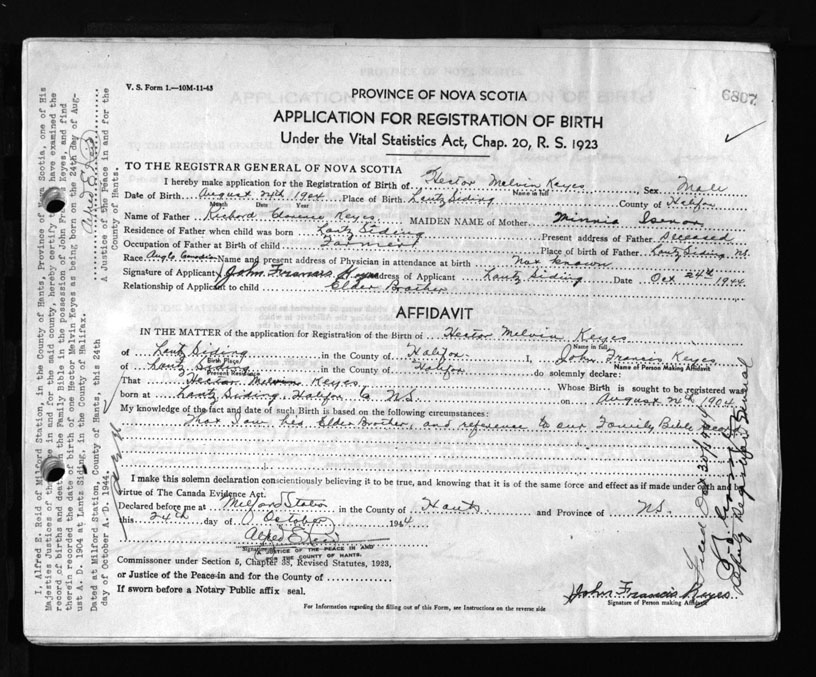 V. S. Form 1.—10M-11-43
6807
PROVINCE OF NOVA SCOTIA
APPLICATION FOR REGISTRATION OF BIRTH
Under the Vital Statistics Act, Chap. 20, R. S. 1923
TO THE REGISTRAR GENERAL OF NOVA SCOTIA
I hereby make application for the Registration of Birth of Hector Melvin Keyes, Sex Male
Name in full
Date of Birth August 24th 1904 Place of Birth Lantz Siding County of Halifax
Month Date Year
Name of Father Richard Clarence Keyes MAIDEN NAME of Mother Minnia Isenor
Residence of Father when child was born Lantz Siding Present address of Father Deceased
Occupation of Father at Birth of child Farmer Place of birth of Father Lantz Siding NS.
Race Anglo Name and present address of Physician in attendance at birth Not known
Signature of Applicant John Francis Keyes address of Applicant Lantz Siding Date Oct 24th 1944
Relationship of Applicant to child Elder Brother
AFFIDAVIT
IN THE MATTER of the application for Registration of the Birth of Hector Melvin Keyes
Name in full
of Lantz Siding in the County of Halifax. I, John Francis Keyes
Birth Place Name of Person Making Affidavit
of Lantz Siding in the County of Halifax do solemnly declare:
Present Residence
That Hector Melvin Keyes Whose Birth is sought to be registered was
born at Lantz Siding, Halifax Co NS. on August 24th 1904
My knowledge of the fact and date of such Birth is based on the following circumstances:
That I am his Elder Brother, and reference to our Family Bible
I make this solemn declaration conscientiously believing it to be true, and knowing that it is of the same force and effect as if made under oath and by
virtue of The Canada Evidence Act.
Declared before me at Milford Station in the County of Hants and Province of NS.
this 24th day of October 1944
Alfred E Reid
A JUSTICE OF THE PEACE IN AND
FOR THE COUNTY OF HANTS.
Commissioner under Section 5, Chapter 38, Revised Statutes, 1923,
or Justice of the Peace in and for the County of
If sworn before a Notary Public affix seal.
John Francis Keyes
Signature of Person making Affidavit
For Information regarding the filling out of this Form, see Instructions on the reverse side
I, Alfred E. Reid of Milford Station, in the County of Hants, Province of Nova Scotia, one of His
Majesties Justices of the Peace in and for the said county, hereby certify that I have examined the
record of births and deaths in the Family Bible in the possession of John Francis Keyes, and find
therein recorded the date of birth of one Hector Melvin Keyes as being born on the 24th day of Aug-
ust A. D. 1904 at Lantz Siding, in the County of Halifax.
Dated at Milford Station, County of Hants, this 24th
day of October A. D. 1944.
Alfred E Reid
A Justice of the Peace in and for the
County of Hants.
Filed Oct 30/1944
Deputy Registrar General